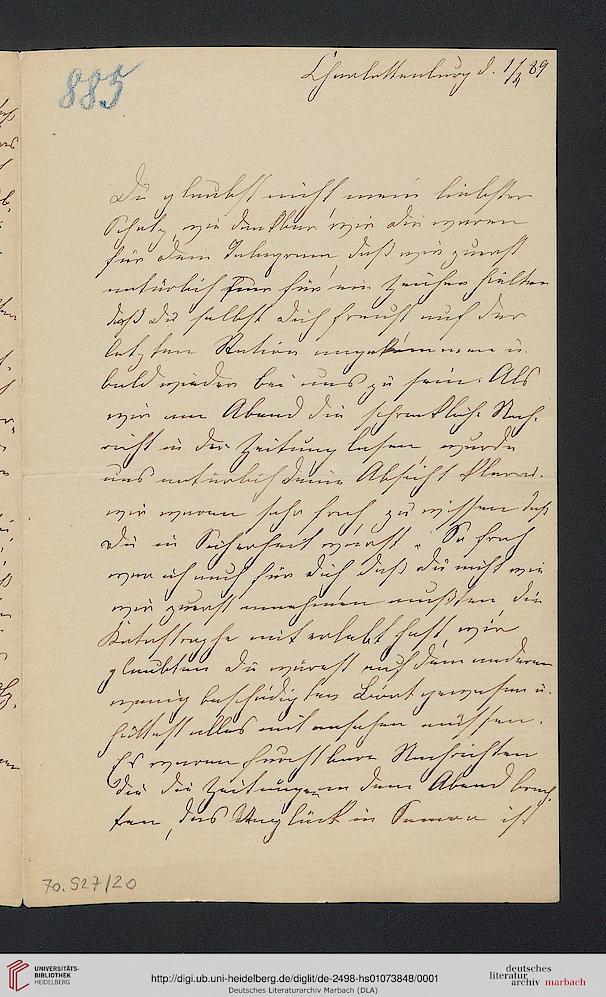 885
Charlottenburg d. 1/4 89
Du glaubst nicht mein liebster
Schatz, wie dankbar wir Dir waren
für Dein Telegramm, daß wir zuerst
natürlich für ein Zeichen hielten
daß Du selbst Dich freust auf der
letzten Station angekommen u.
bald wieder bei uns zu sein. Als
wir am Abend die schreckliche Nach-
richt in der Zeitung lasen, wurde
uns natürlich Deine Absicht klar u.
wir waren sehr froh zu wissen daß
Du in Sicherheit warst. So froh
war ich auch für Dich daß Du nicht wie
wir zuerst annehmen mußten, die
Katastrophe mit erlebt hast, wir
glaubten Du wärest auf dem anderen
wenig beschädigten Boot gewesen u.
hättest alles mit ansehen müssen.
Es waren furchtbare Nachrichten
die die Zeitungen an dem Abend brach-
ten, das Unglück in Samoa ist
70.927/20
UNIVERSITÄTS-
BIBLIOTHEK
HEIDELBERG
http://digi.ub.uni-heidelberg.de/diglit/de-2498-hs01073848/0001
Deutsches Literaturarchiv Marbach (DLA)
deutsches
literatur
archiv marbach